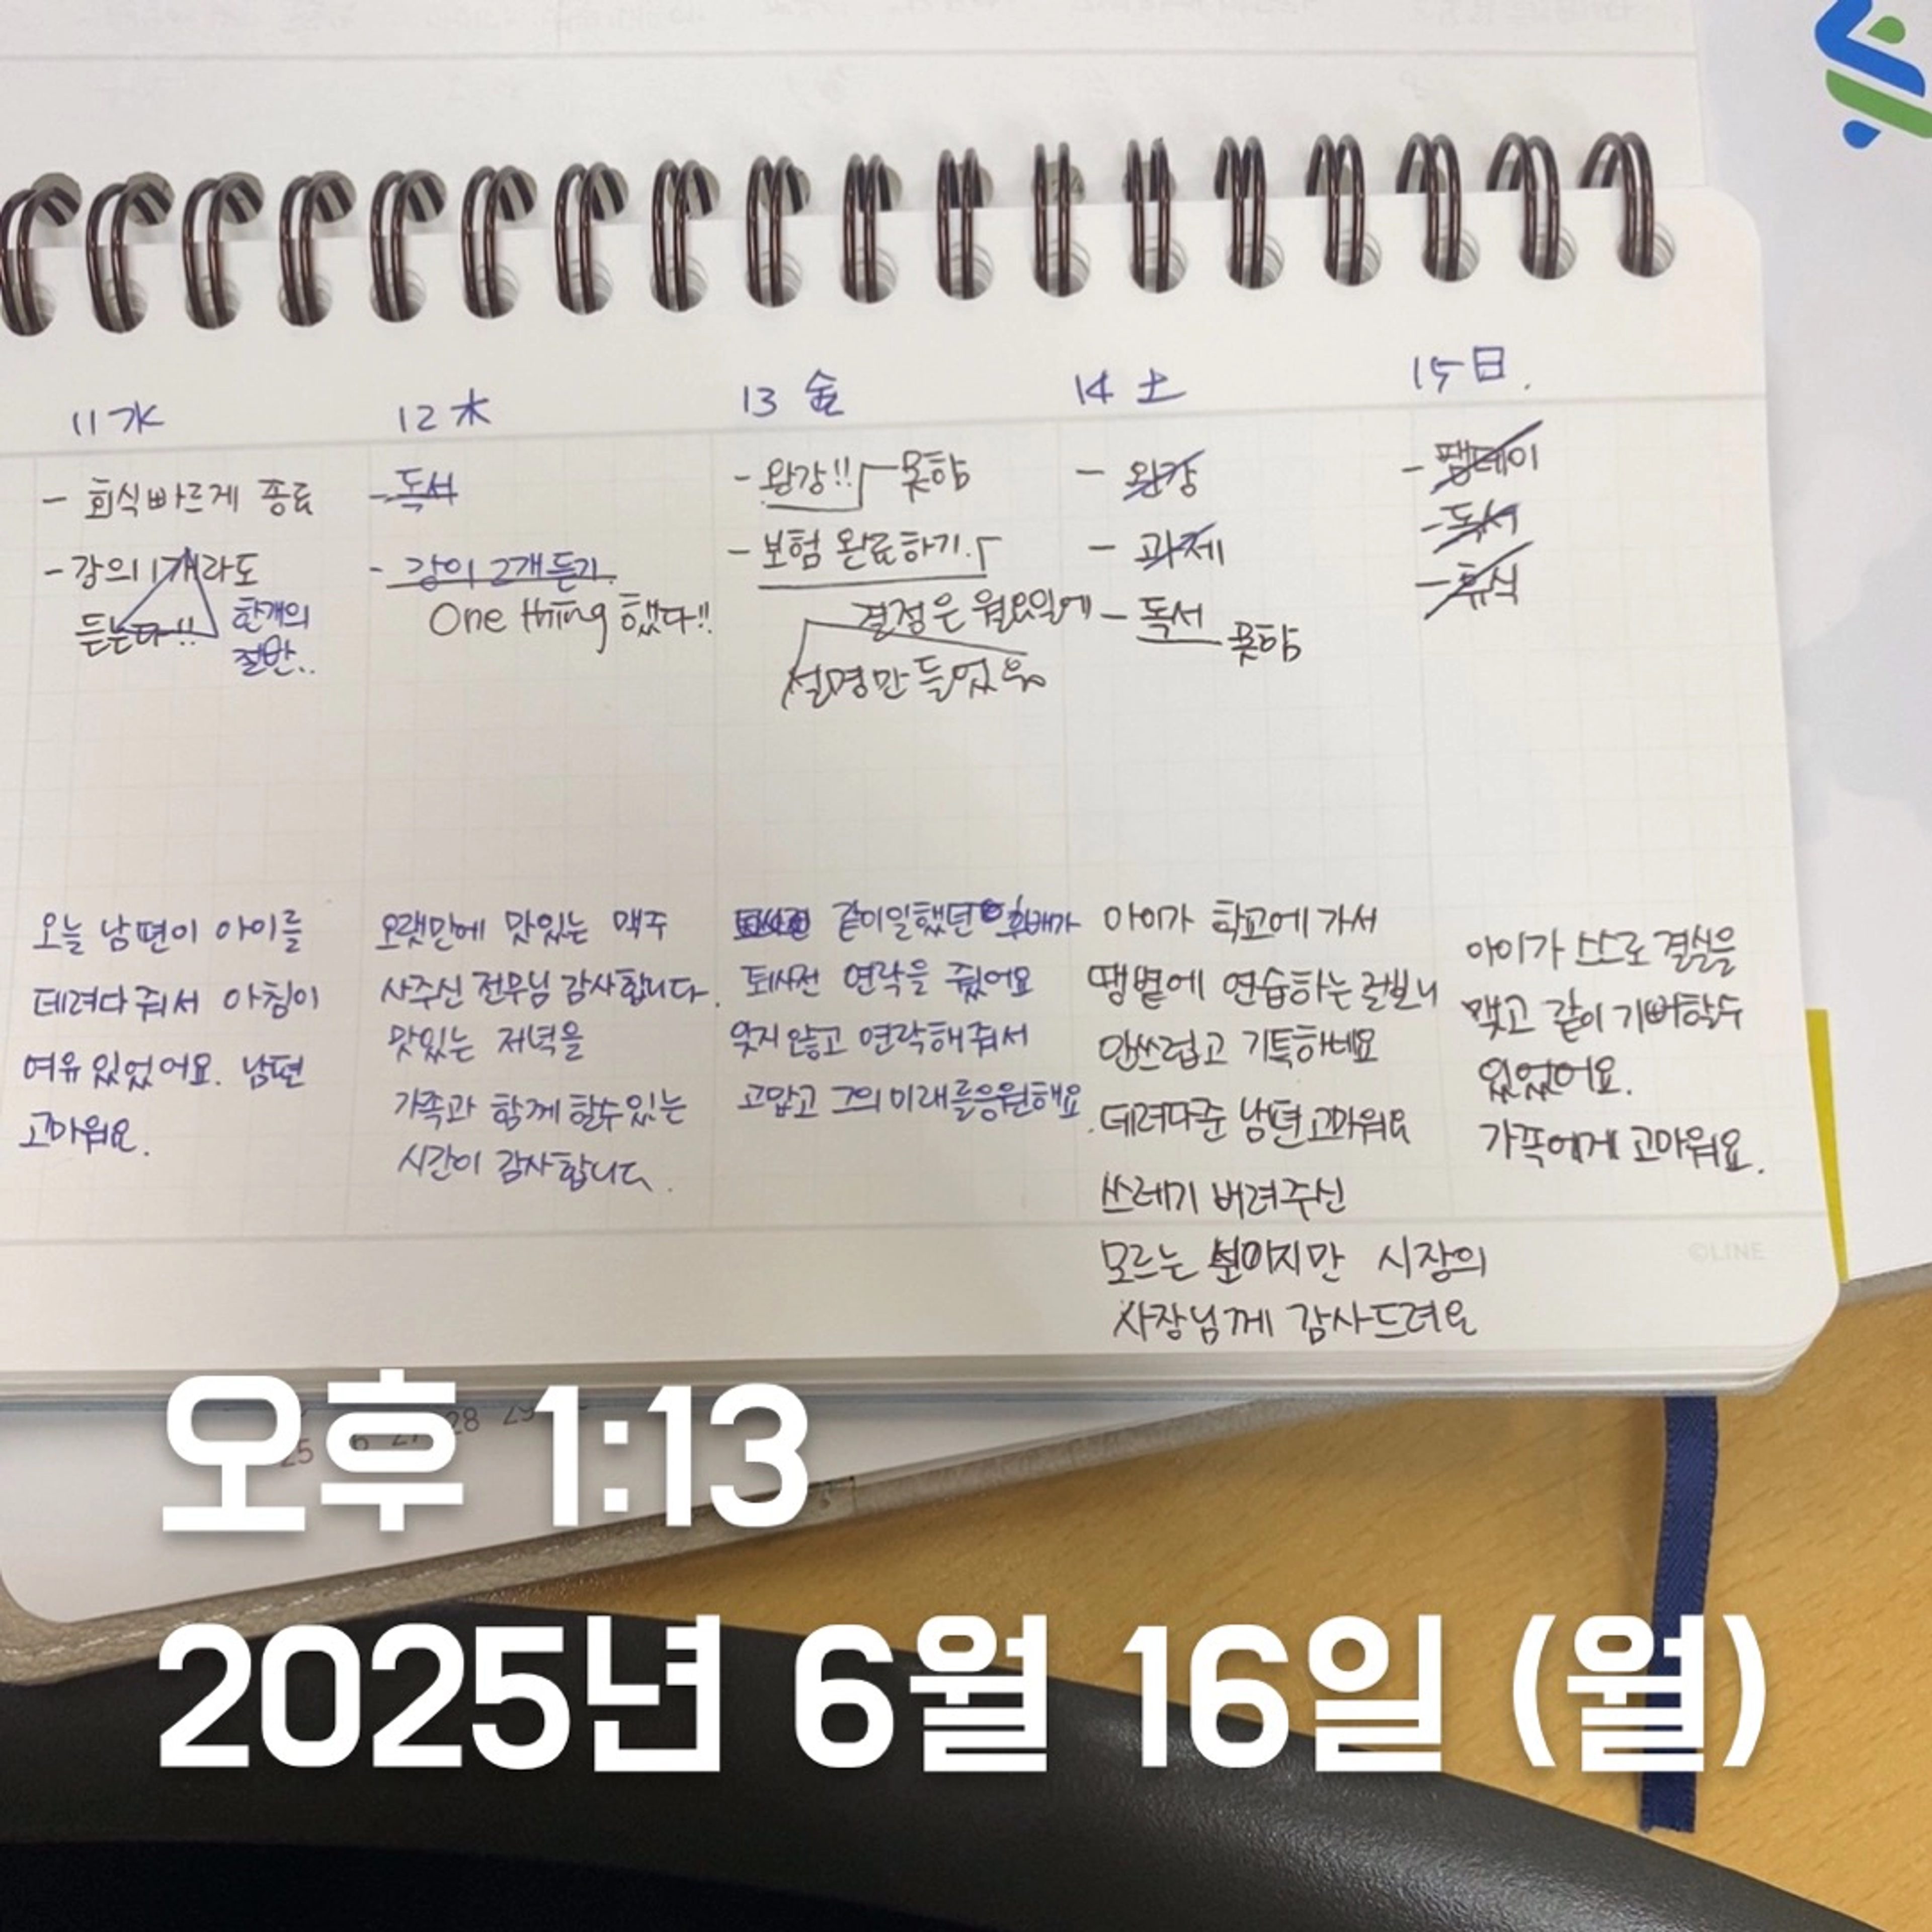 11 水
- 회식 빠르게 종료
- 강의 1개라도
듣는다!!
한개의
절반..
오늘 남편이 아이를
데려다 줘서 아침이
여유 있었어요. 남편
고마워요.
12 木
- 독서
- 강의 2개 듣기.
One thing 했다!!
오랫만에 맛있는 맥주
사주신 전무님 감사합니다.
맛있는 저녁을
가족과 함께 할수 있는
시간이 감사합니다.
13 金
- 완강!! 못함
- 보험 완료하기.
결정은 월요일에
설명만 들었음
같이일했던 후배가
퇴사전 연락을 줬어요
잊지않고 연락해줘서
고맙고 그의 미래를응원해요.
14 土
- 완강
- 과제
- 독서 못함
아이가 학교에 가서
땡볕에 연습하는걸보니
안쓰럽고 기특하네요
데려다준 남편고마워요
쓰레기 버려주신
모르는 분이지만 시장의
사장님께 감사드려요
15 日.
- 땡데이
- 독서
- 휴식
아이가 스스로 결실을
맺고 같이 기뻐할수
있었어요.
가족에게 고마워요.
©LINE
28 29
25 6 27
오후 1:13
2025년 6월 16일 (월)